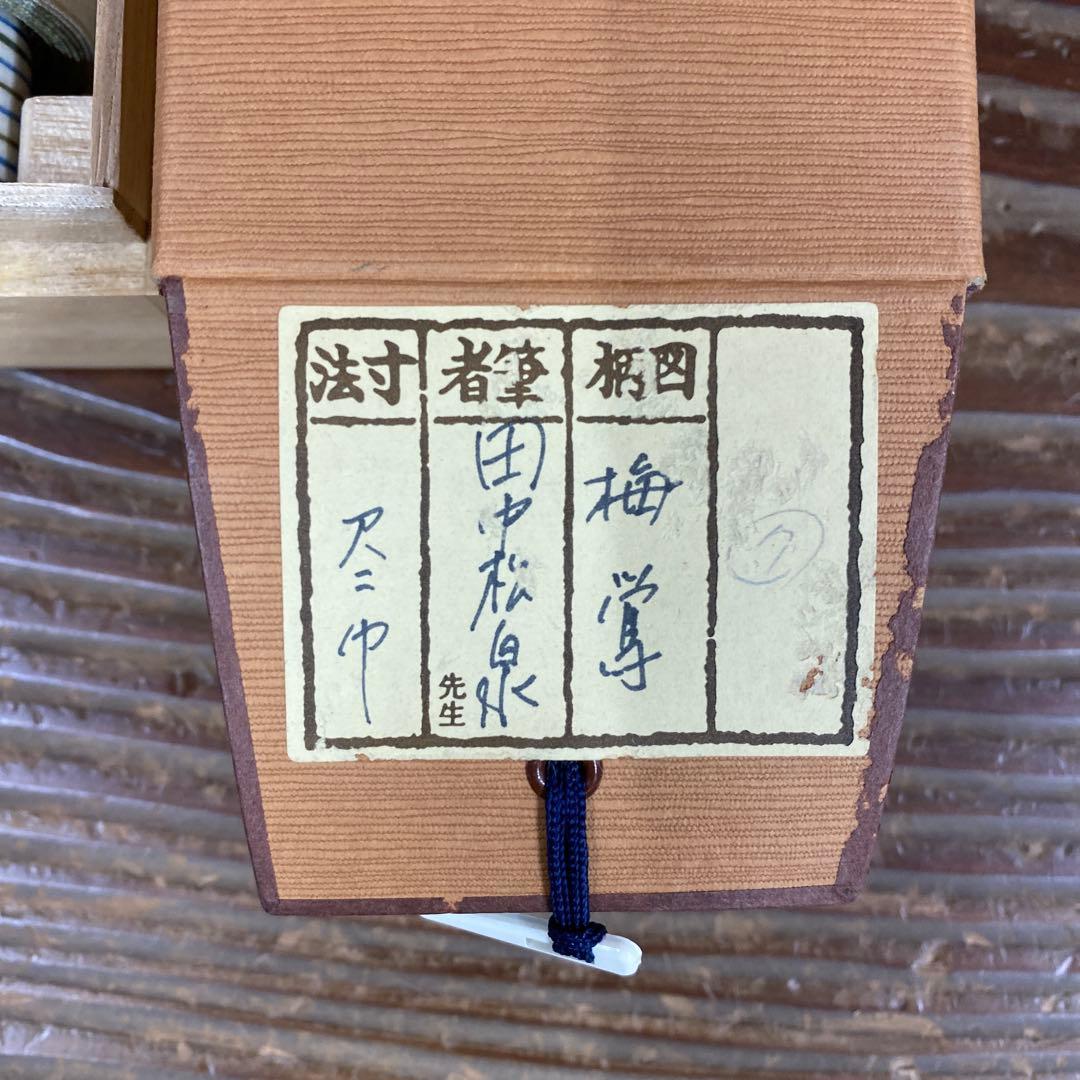 図柄
梅鴬
筆者
田中松泉
先生
寸法
尺二巾